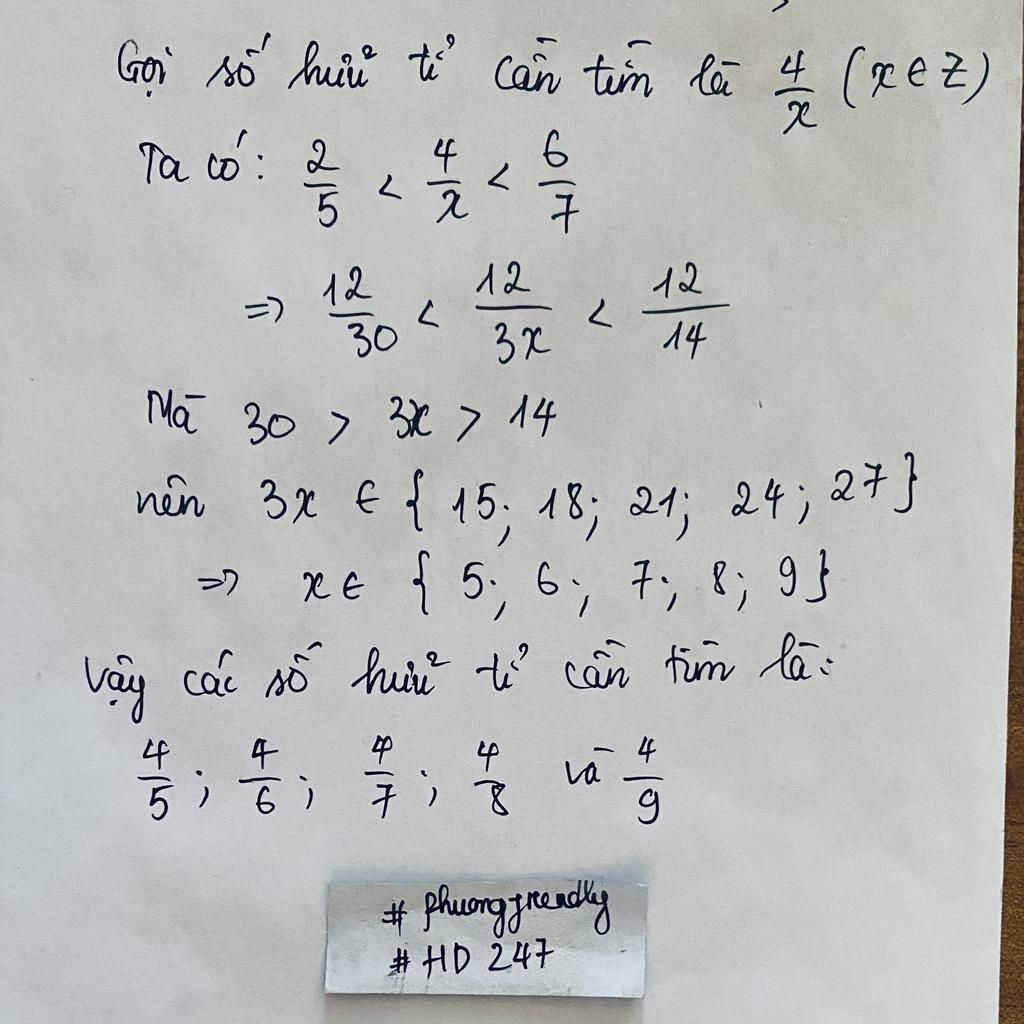 Gọi số hữu tỉ cần tìm là 4/x (x ∈ Z)
Ta có: 2/5 < 4/x < 6/7
=> 12/30 < 12/3x < 12/14
Mà 30 > 3x > 14
nên 3x ∈ { 15; 18; 21; 24; 27 }
=> x ∈ { 5; 6; 7; 8; 9 }
Vậy các số hữu tỉ cần tìm là:
4/5 ; 4/6 ; 4/7 ; 4/8 và 4/9
# phuongfreadly
# HD 247